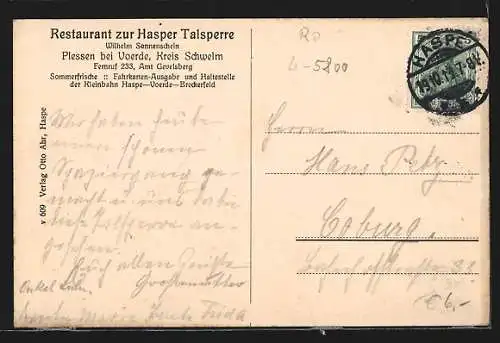 Restaurant zur Hasper Talsperre
Wilhelm Sonnenschein
Plessen bei Voerde, Kreis Schwelm
Fernruf 233, Amt Gevelsberg
Sommerfrische :: Fahrkarten-Ausgabe und Haltestelle
der Kleinbahn Haspe—Voerde—Breckerfeld
v 609 Verlag Otto Ahr, Haspe
HASPE
Wir haben heute
einen schönen
Spaziergang ge-
macht u. uns
die Talsperre an-
gesehen.
Euch allen Grüße
Großmutter
Onkel
Maria Frida
Herrn
Hans
Coburg.
Bahnhofstraße
€ 6,-